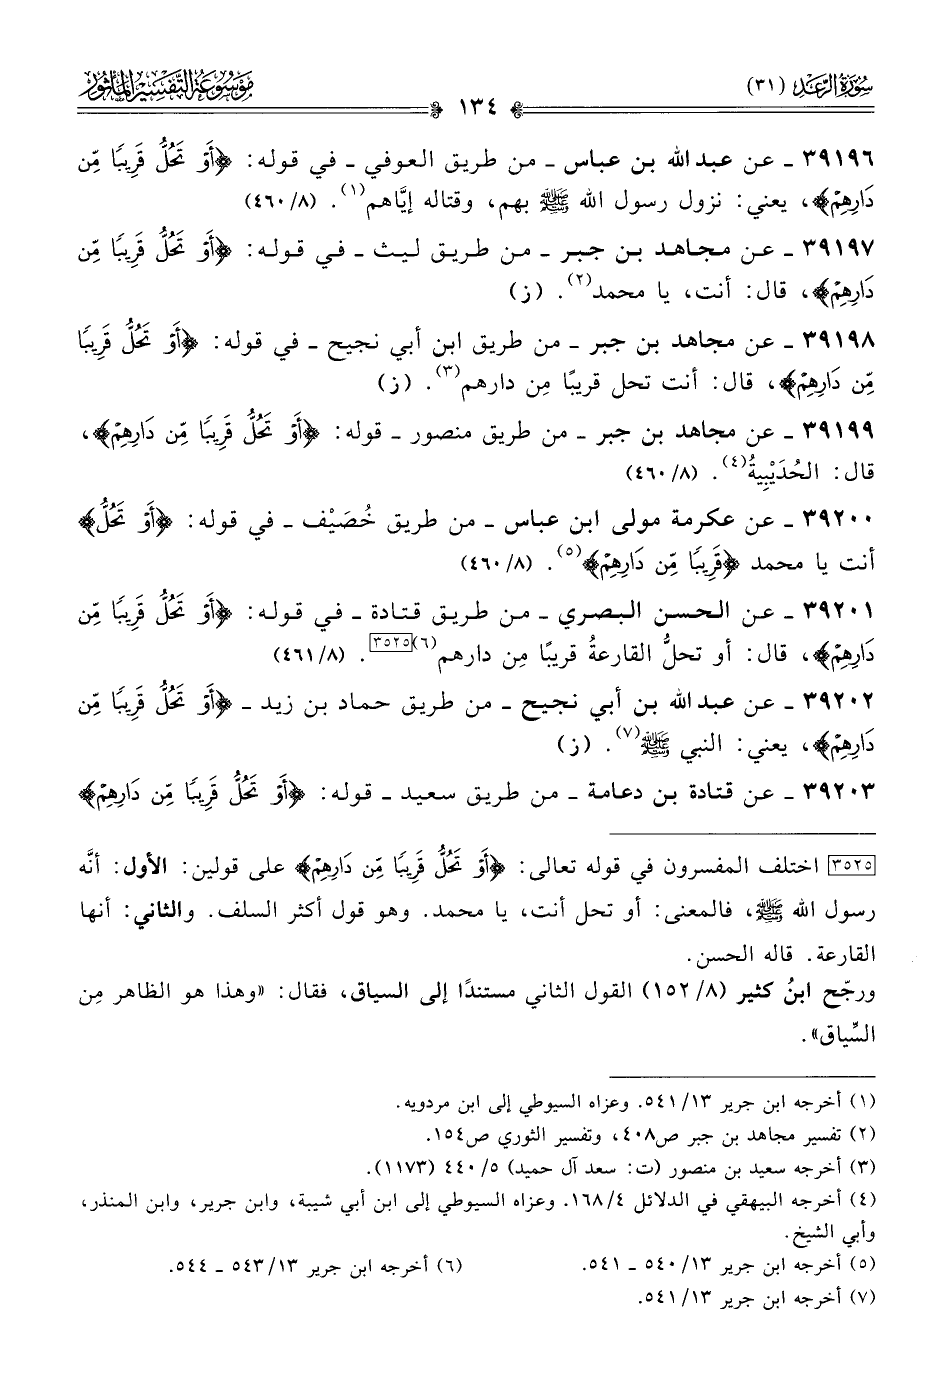 سُورَةُ الرَّعْدِ (٣١)
موسوعة التفسير المأثور
١٣٤
٣٩١٩٦ ـ عن عبد الله بن عباس ـ من طريق العوفي ـ في قوله: ﴿أَوْ تَحُلُّ قَرِيبًا مِّن
دَارِهِمْ﴾، يعني: نزول رسول الله ﷺ بهم، وقتاله إيَّاهم(١). (٤٦٠/٨)
٣٩١٩٧ ـ عن مجاهد بن جبر ـ من طريق ليث ـ في قوله: ﴿أَوْ تَحُلُّ قَرِيبًا مِّن
دَارِهِمْ﴾، قال: أنت، يا محمد(٢). (ز)
٣٩١٩٨ ـ عن مجاهد بن جبر ـ من طريق ابن أبي نجيح ـ في قوله: ﴿أَوْ تَحُلُّ قَرِيبًا
مِّن دَارِهِمْ﴾، قال: أنت تحل قريبًا مِن دارهم(٣). (ز)
٣٩١٩٩ ـ عن مجاهد بن جبر ـ من طريق منصور ـ قوله: ﴿أَوْ تَحُلُّ قَرِيبًا مِّن دَارِهِمْ﴾،
قال: الحُدَيْبِيةُ(٤). (٤٦٠/٨)
٣٩٢٠٠ ـ عن عكرمة مولى ابن عباس ـ من طريق خُصَيْف ـ في قوله: ﴿أَوْ تَحُلُّ﴾
أنت يا محمد ﴿قَرِيبًا مِّن دَارِهِمْ﴾(٥). (٤٦٠/٨)
٣٩٢٠١ ـ عن الحسن البصري ـ من طريق قتادة ـ في قوله: ﴿أَوْ تَحُلُّ قَرِيبًا مِّن
دَارِهِمْ﴾، قال: أو تحلُّ القارعةُ قريبًا مِن دارهم(٦)[٣٥٢٥]. (٤٦١/٨)
٣٩٢٠٢ ـ عن عبد الله بن أبي نجيح ـ من طريق حماد بن زيد ـ ﴿أَوْ تَحُلُّ قَرِيبًا مِّن
دَارِهِمْ﴾، يعني: النبي ﷺ(٧). (ز)
٣٩٢٠٣ ـ عن قتادة بن دعامة ـ من طريق سعيد ـ قوله: ﴿أَوْ تَحُلُّ قَرِيبًا مِّن دَارِهِمْ﴾
[٣٥٢٥] اختلف المفسرون في قوله تعالى: ﴿أَوْ تَحُلُّ قَرِيبًا مِّن دَارِهِمْ﴾ على قولين: الأول: أنَّه
رسول الله ﷺ، فالمعنى: أو تحل أنت، يا محمد. وهو قول أكثر السلف. والثاني: أنها
القارعة. قاله الحسن.
ورجّح ابنُ كثير (١٥٢/٨) القول الثاني مستندًا إلى السياق، فقال: «وهذا هو الظاهر مِن
السِّياق».
(١) أخرجه ابن جرير ٥٤١/١٣. وعزاه السيوطي إلى ابن مردويه.
(٢) تفسير مجاهد بن جبر ص٤٠٨، وتفسير الثوري ص١٥٤.
(٣) أخرجه سعيد بن منصور (ت: سعد آل حميد) ٤٤٠/٥ (١١٧٣).
(٤) أخرجه البيهقي في الدلائل ١٦٨/٤. وعزاه السيوطي إلى ابن أبي شيبة، وابن جرير، وابن المنذر،
وأبي الشيخ.
(٥) أخرجه ابن جرير ٥٤٠/١٣ ـ ٥٤١.
(٦) أخرجه ابن جرير ٥٤٣/١٣ ـ ٥٤٤.
(٧) أخرجه ابن جرير ٥٤١/١٣.